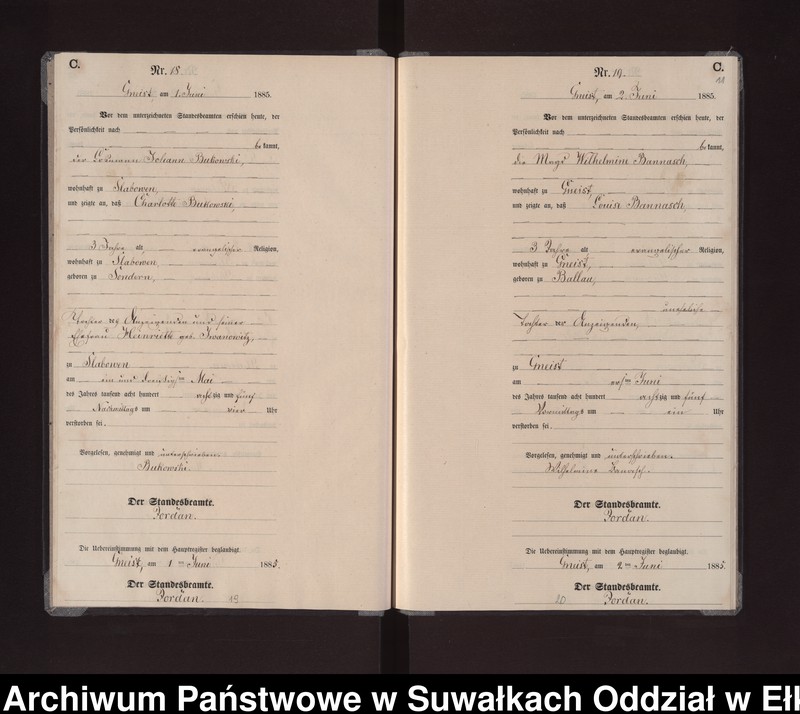 C.
Nr. 18.
Gneist, am 1. Juni 1885.
Vor dem unterzeichneten Standesbeamten erschien heute, der
Persönlichkeit nach
be kannt,
der Losmann Johann Bukowski,
wohnhaft zu Slabowen,
und zeigte an, daß Charlotte Bukowski,
3 Jahre alt evangelischer Religion,
wohnhaft zu Slabowen,
geboren zu Sondern,
Tochter des Anzeigenden und seiner
Ehefrau Heinriette geb. Iwanowitz,
zu Slabowen
am ein und dreißigsten Mai
des Jahres tausend acht hundert achtzig und fünf
Nachmittags um vier Uhr
verstorben sei.
Vorgelesen, genehmigt und unterschrieben.
Bukowski.
Der Standesbeamte.
Jordan.
Die Uebereinstimmung mit dem Hauptregister beglaubigt.
Gneist, am 1ten Juni 1885.
Der Standesbeamte.
Jordan.
19
C.
18
Nr. 19.
Gneist, am 2. Juni 1885.
Vor dem unterzeichneten Standesbeamten erschien heute, der
Persönlichkeit nach
be kannt,
die Magd Wilhelmine Bannasch,
wohnhaft zu Gneist,
und zeigte an, daß Louise Bannasch,
3 Jahre alt evangelischer Religion,
wohnhaft zu Gneist,
geboren zu Ballau,
uneheliche
Tochter der Anzeigenden,
zu Gneist
am ersten Juni
des Jahres tausend acht hundert achtzig und fünf
Vormittags um ein Uhr
verstorben sei.
Vorgelesen, genehmigt und unterschrieben.
Wilhelmine
Der Standesbeamte.
Jordan.
Die Uebereinstimmung mit dem Hauptregister beglaubigt.
Gneist, am 2ten Juni 1885.
Der Standesbeamte.
20 Jordan.
Archiwum Państwowe w Suwałkach Oddział w Ełk